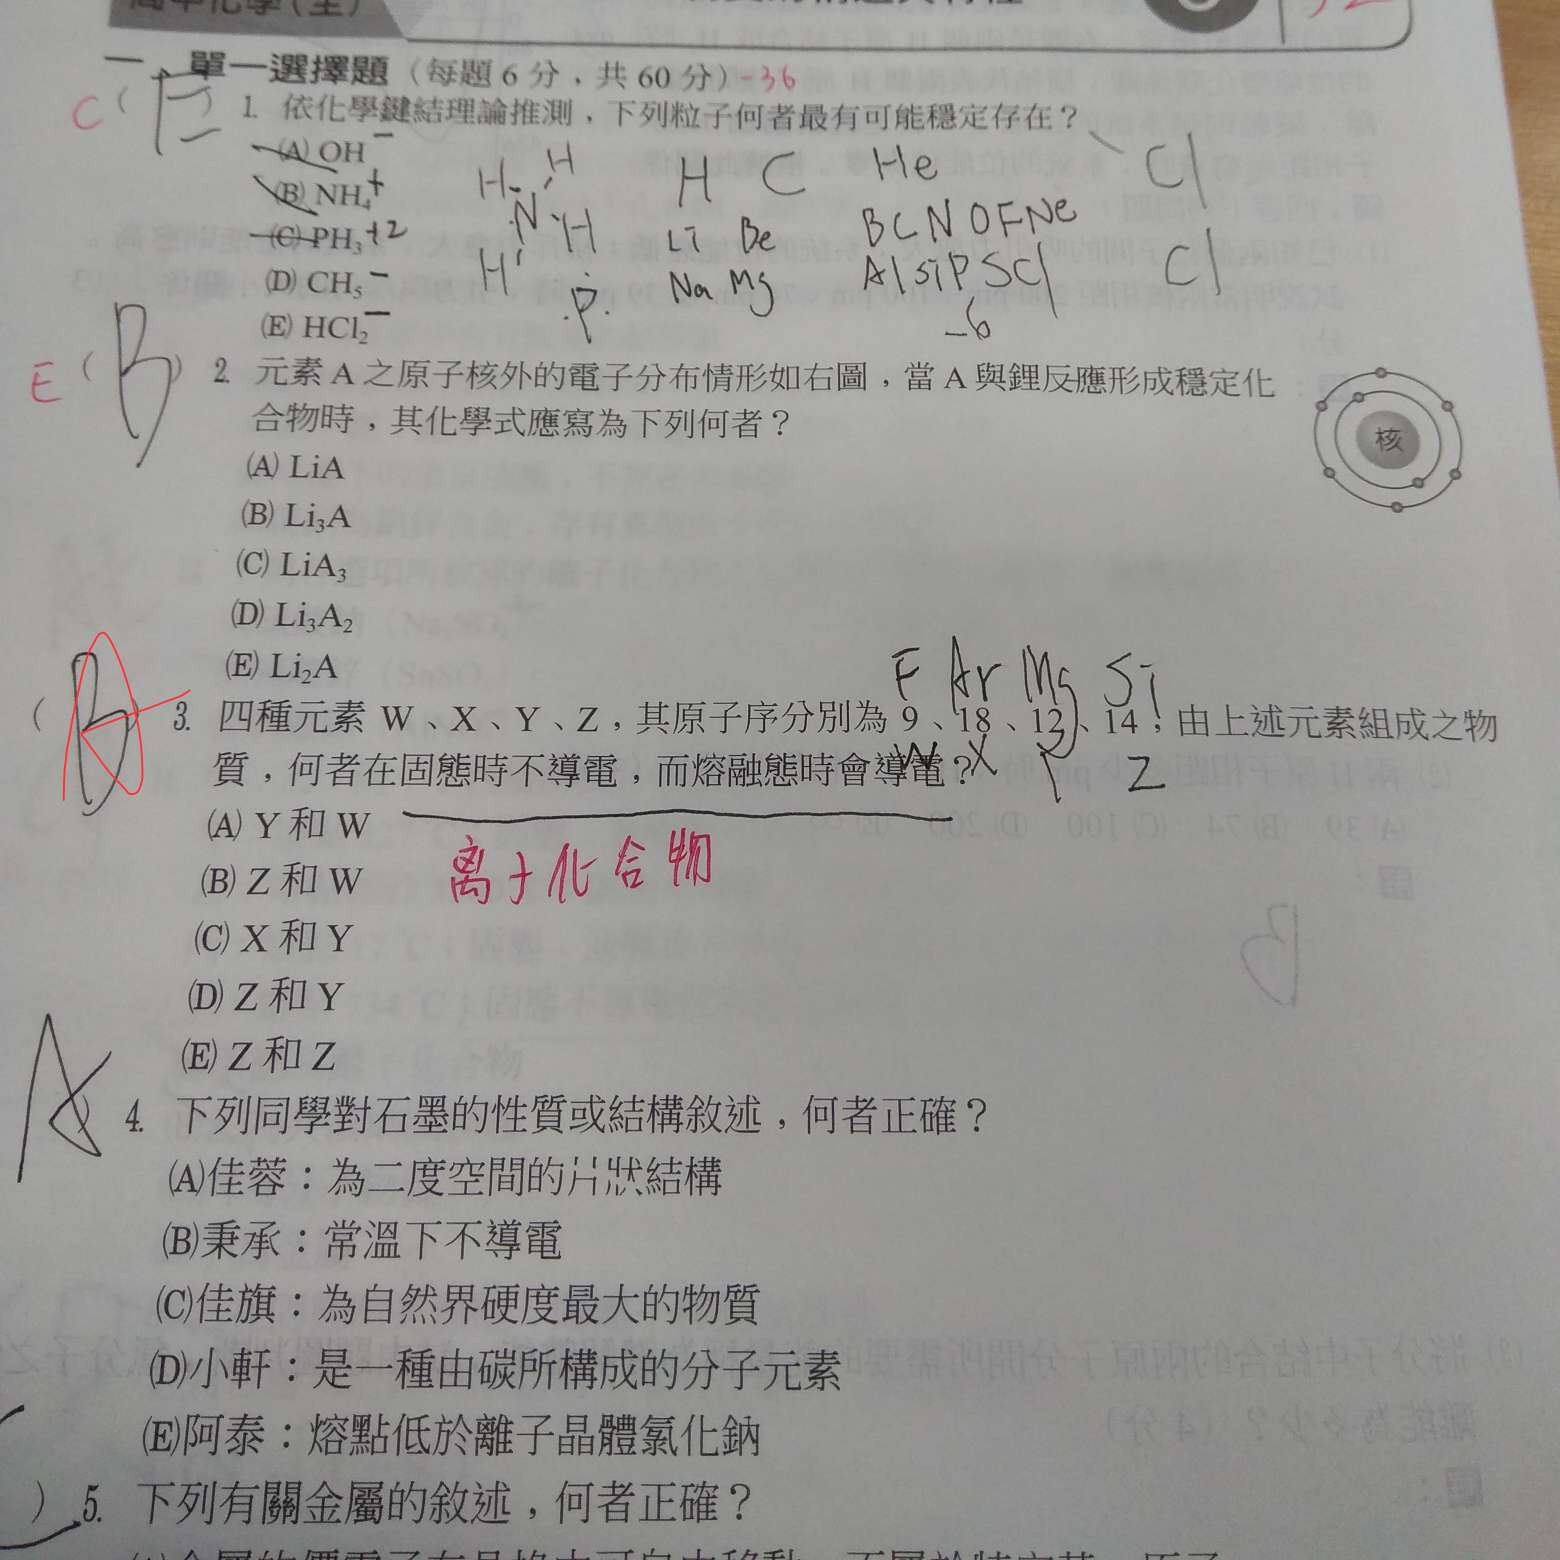 高中化學(全)
一 單一選擇題（每題6分，共60分）-36
C ( E ) 1. 依化學鍵結理論推測，下列粒子何者最有可能穩定存在？
(A) OH −
(B) NH₄ +
(C) PH₃ +2
(D) CH₅ −
(E) HCl₂ −
H H N H H
P
H C He Cl
Li Be B C N O F Ne
Na Mg Al Si P S Cl Cl
-6
E ( B ) 2. 元素 A 之原子核外的電子分布情形如右圖，當 A 與鋰反應形成穩定化
合物時，其化學式應寫為下列何者？
核
(A) LiA
(B) Li₃A
(C) LiA₃
(D) Li₃A₂
(E) Li₂A
F Ar Mg Si
( B A ) 3. 四種元素 W、X、Y、Z，其原子序分別為 9、18、12、14，由上述元素組成之物
質，何者在固態時不導電，而熔融態時會導電？
W X Y Z
(A) Y 和 W
离子化合物
(B) Z 和 W
(C) X 和 Y
(D) Z 和 Y
(E) Z 和 Z
A ) 4. 下列同學對石墨的性質或結構敘述，何者正確？
(A)佳蓉：為二度空間的片狀結構
(B)秉承：常溫下不導電
(C)佳旗：為自然界硬度最大的物質
(D)小軒：是一種由碳所構成的分子元素
(E)阿泰：熔點低於離子晶體氯化鈉
) 5. 下列有關金屬的敘述，何者正確？